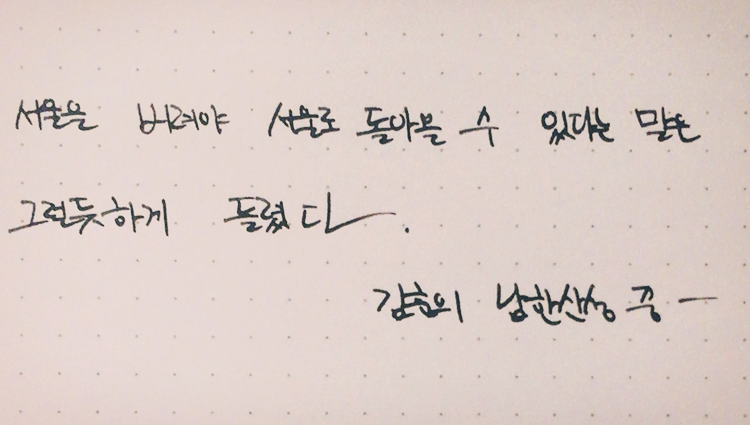 서울은 버려야 서울로 돌아올 수 있다는 말은
그럴듯하게 들렸다.
김훈의 남한산성 중 -